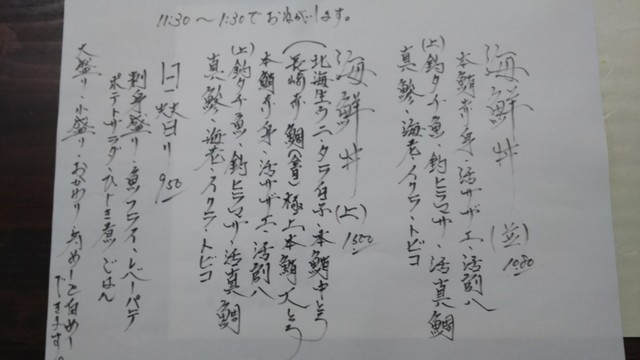 11:30～1:30でお願いします。
海鮮丼(並)1080
本鮪赤身・活サザエ・活訓八
(上)釣タチ魚・釣ヒラマサ・活真鯛
真鯵・海老・イクラ・トビコ
海鮮丼(上)1500
北海生ウニ・タラ白子・本鮪中とろ
長崎赤鯛 極上本鮪大とろ
本鮪赤身・活サザエ・活訓八
(上)釣タチ魚・釣ヒラマサ・活真鯛
真鯵・海老・イクラ・トビコ
日替り950
刺身盛り・魚フライ・レバーパテ
ポテトサラダ・ひじき煮・ごはん
大盛り・小盛り・おかわり
できます。